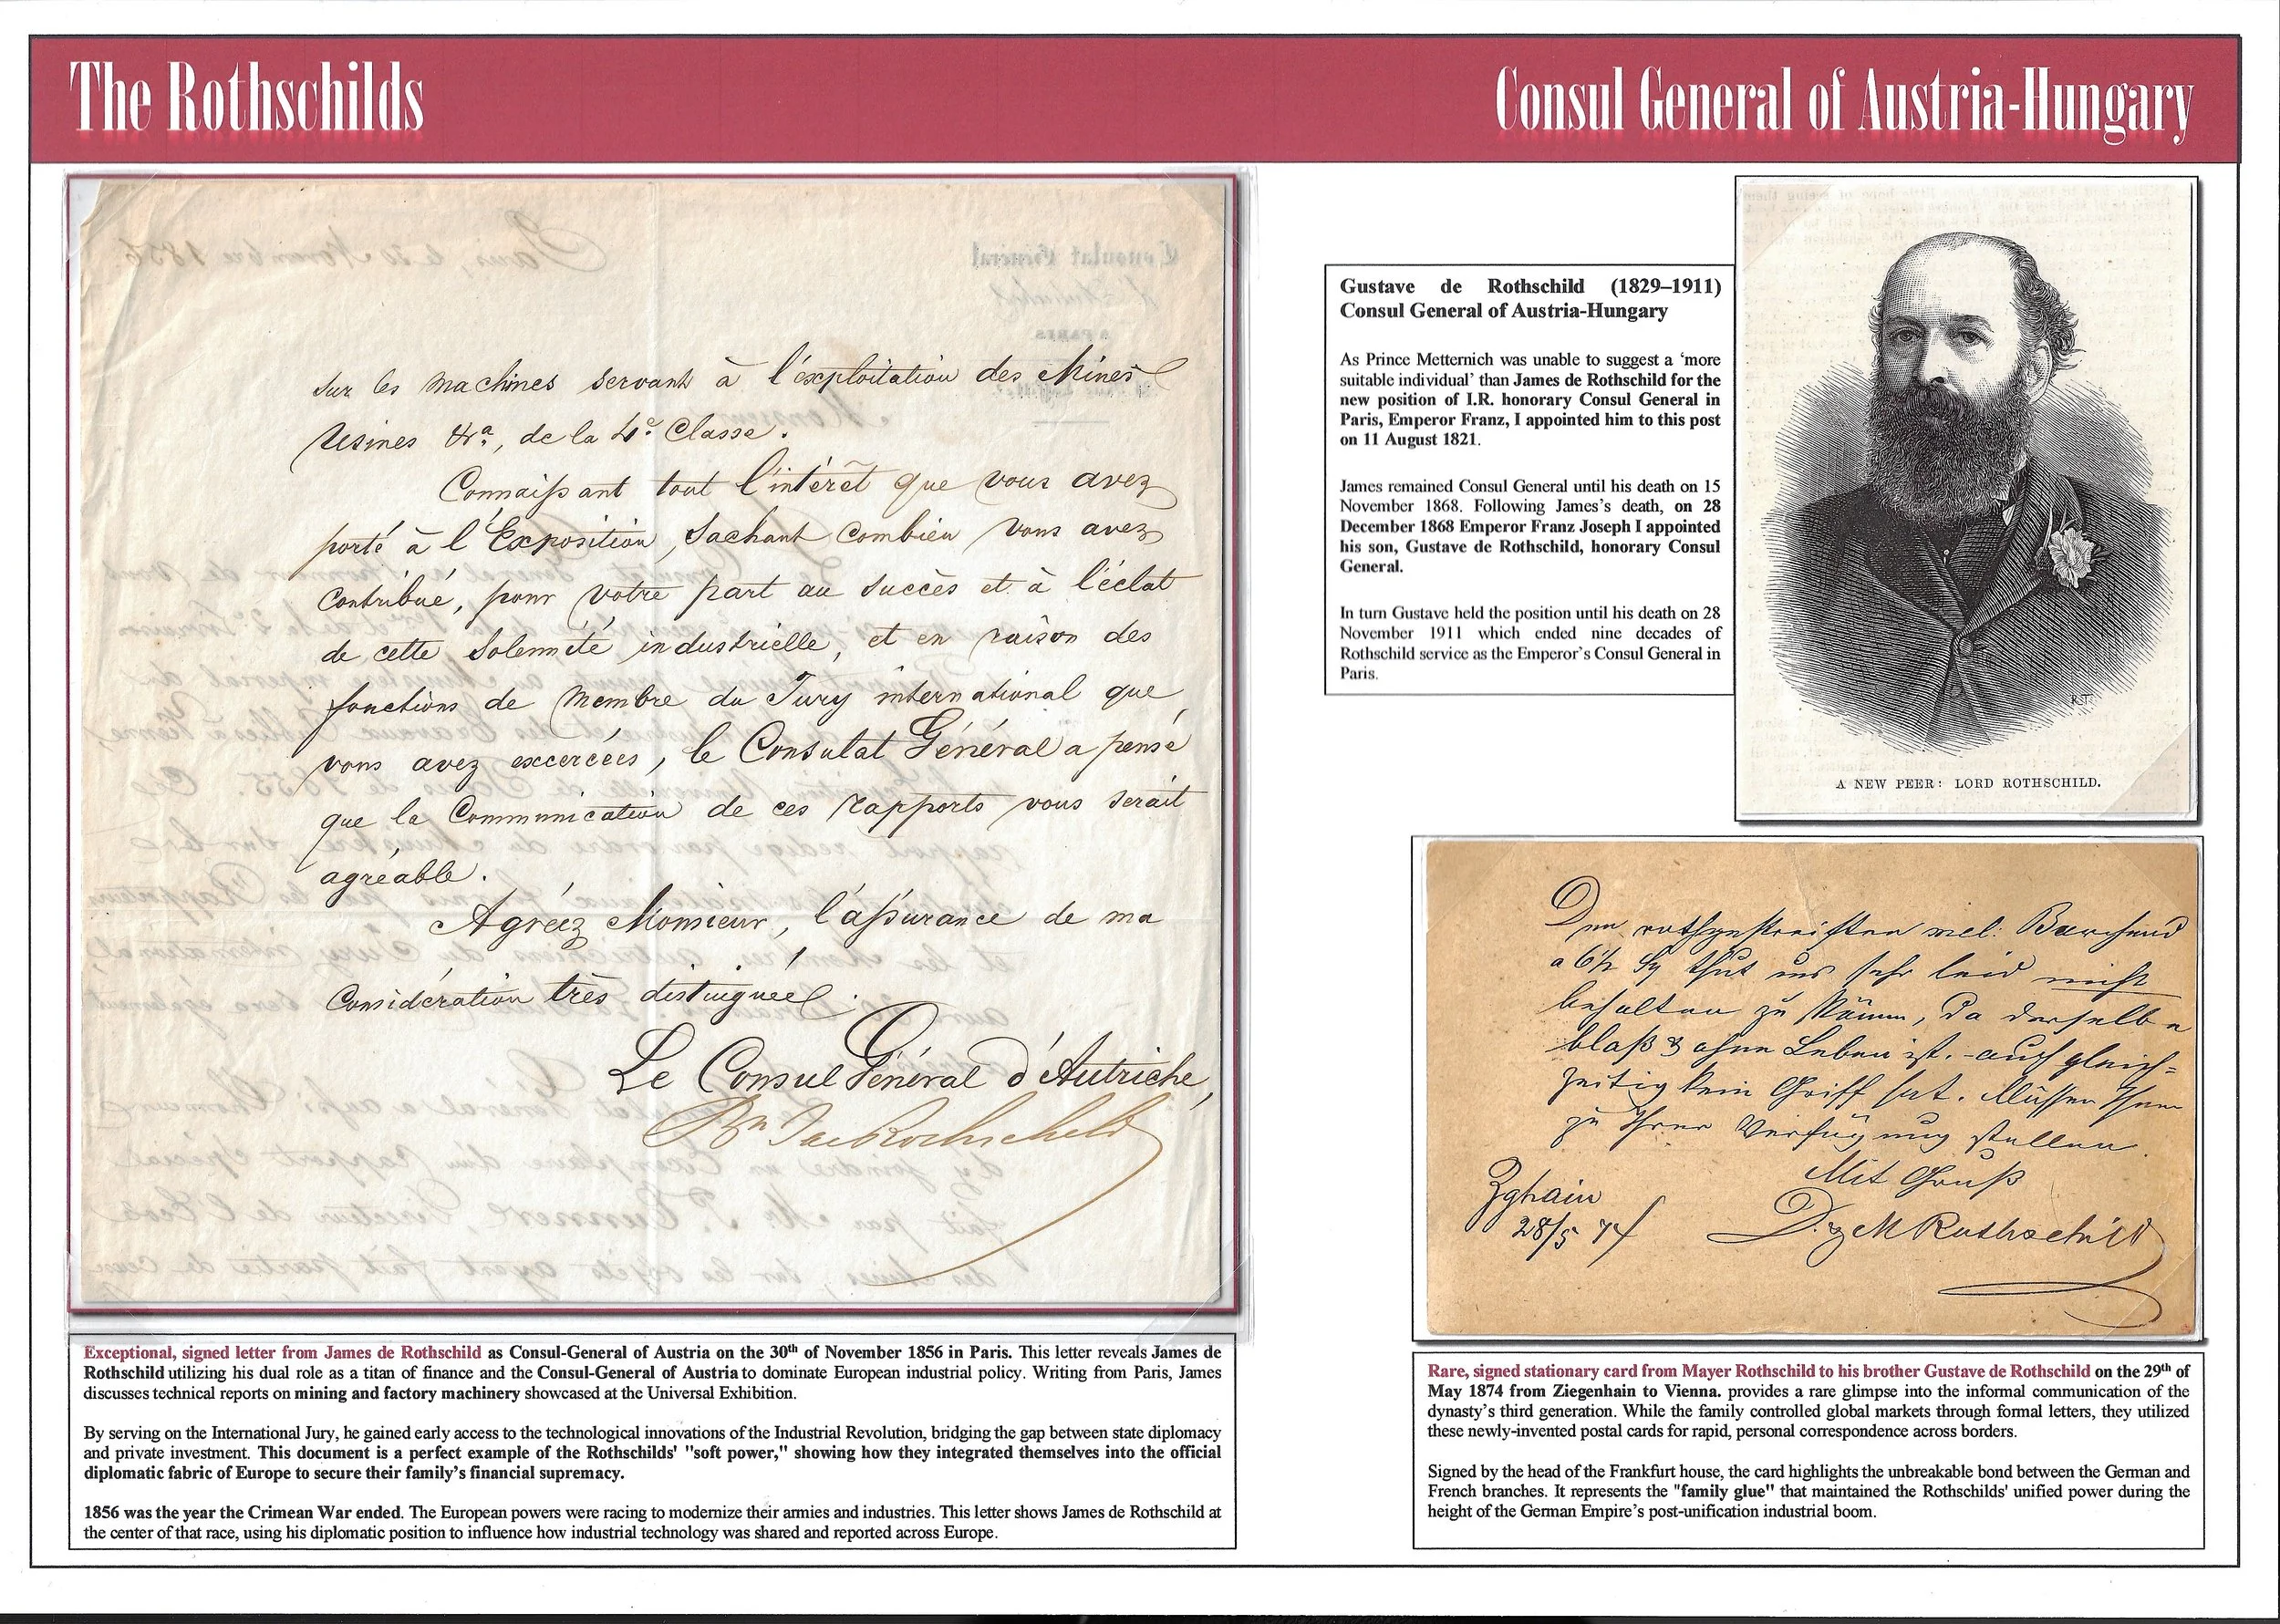 The Rothschilds
Consul General of Austria-Hungary
sur les machines servant à l'exploitation des Mines
Usines &ra, de la 4e Classe.
Connaissant tout l'intérêt que vous avez
porté à l'Exposition, Sachant combien vous avez
contribué, pour votre part au succès et à l'éclat
de cette Solennité industrielle, et en raison des
fonctions de Membre du Jury international que
vous avez excercées, le Consulat Général a pensé
que la Communication de ces rapports vous serait
agréable.
Agréez Monsieur, l'assurance de ma
Considération très distinguée.
Le Consul Général d'Autriche,
Bn J de Rothschild
Gustave de Rothschild (1829–1911)
Consul General of Austria-Hungary
As Prince Metternich was unable to suggest a ‘more
suitable individual’ than James de Rothschild for the
new position of I.R. honorary Consul General in
Paris, Emperor Franz, I appointed him to this post
on 11 August 1821.
James remained Consul General until his death on 15
November 1868. Following James’s death, on 28
December 1868 Emperor Franz Joseph I appointed
his son, Gustave de Rothschild, honorary Consul
General.
In turn Gustave held the position until his death on 28
November 1911 which ended nine decades of
Rothschild service as the Emperor’s Consul General in
Paris.
R.T.
A NEW PEER: LORD ROTHSCHILD.
Den rothgestreiften mel: Barchend
a 6½ Sg thut uns sehr leid nicht
behalten zu können, da derselbe
blaß & ohne Leben ist. - auch gleich=
zeitig kein Griff hat. Müssen Ihnen
zu Ihrer Verfügung stellen.
Mit Gruß
Zghain
28/5 74
D. & M Rothschild
Exceptional, signed letter from James de Rothschild as Consul-General of Austria on the 30th of November 1856 in Paris. This letter reveals James de
Rothschild utilizing his dual role as a titan of finance and the Consul-General of Austria to dominate European industrial policy. Writing from Paris, James
discusses technical reports on mining and factory machinery showcased at the Universal Exhibition.
By serving on the International Jury, he gained early access to the technological innovations of the Industrial Revolution, bridging the gap between state diplomacy
and private investment. This document is a perfect example of the Rothschilds' "soft power," showing how they integrated themselves into the official
diplomatic fabric of Europe to secure their family’s financial supremacy.
1856 was the year the Crimean War ended. The European powers were racing to modernize their armies and industries. This letter shows James de Rothschild at
the center of that race, using his diplomatic position to influence how industrial technology was shared and reported across Europe.
Rare, signed stationary card from Mayer Rothschild to his brother Gustave de Rothschild on the 29th of
May 1874 from Ziegenhain to Vienna. provides a rare glimpse into the informal communication of the
dynasty’s third generation. While the family controlled global markets through formal letters, they utilized
these newly-invented postal cards for rapid, personal correspondence across borders.
Signed by the head of the Frankfurt house, the card highlights the unbreakable bond between the German and
French branches. It represents the "family glue" that maintained the Rothschilds' unified power during the
height of the German Empire’s post-unification industrial boom.